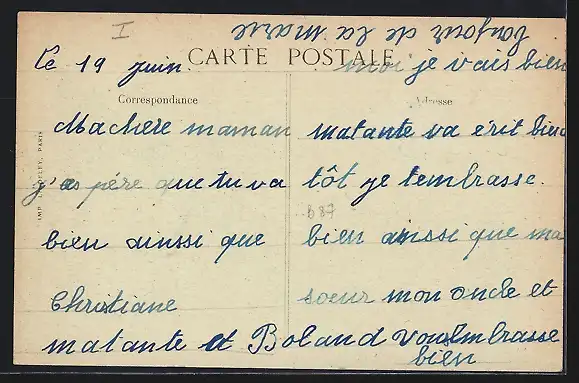 bonjour de la marie
I
CARTE POSTALE
Le 19 juin.
Correspondance
Machere maman
j'es pére que tu va
bien ainssi que
Christiane
matante et Boland vous Embrasse
bien
moi je vais bien
Adresse
matante va érit bien
tôt je tembrasse.
b 87
bien ainssi que ma
soeur mon oncle et
PARIS